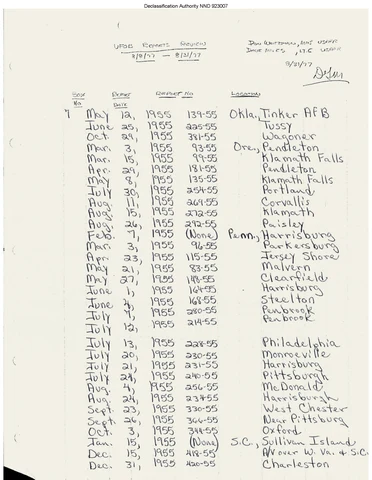 Declassification Authority NND 923007
UFOB REPORTS REVIEW
9/9/77 — 9/21/77
9/21/77
BOX No. EVENT DATE REPORT NO LOCATION
7 May 12, 1955 139-55 Okla, Tinker AFB
June 25, 1955 225-55 Tussy
Oct. 29, 1955 381-55 Wagoner
Mar. 3, 1955 93-55 Ore, Pendleton
Mar. 15, 1955 99-55 Klamath Falls
Apr. 29, 1955 181-55 Pendleton
May 8, 1955 135-55 Klamath Falls
July 30, 1955 254-55 Portland
Aug. 11, 1955 269-55 Corvallis
Aug. 15, 1955 272-55 Klamath
Aug. 26, 1955 292-55 Paisley
Feb. 7, 1955 (None) Penn, Harrisburg
Mar. 3, 1955 96-55 Parkersburg
Apr. 23, 1955 115-55 Jersey Shore
May 21, 1955 83-55 Malvern
May 27, 1955 148-55 Clearfield
June 1, 1955 164-55 Harrisburg
June 4, 1955 168-55 Steelton
July 9, 1955 280-55 Penbrook
July 12, 1955 214-55 Penbrook
July 13, 1955 228-55 Philadelphia
July 20, 1955 230-55 Monroeville
July 21, 1955 231-55 Harrisburg
July 24, 1955 240-55 Pittsburgh
Aug. 4, 1955 256-55 McDonald
Aug. 24, 1955 234-55 Harrisburgh
Sept. 23, 1955 330-55 West Chester
Sept. 26, 1955 366-55 Near Pittsburg
Oct. 3, 1955 344-55 Oxford
Jan. 15, 1955 (None) S.C., Sullivan Island
Dec. 15, 1955 418-55 A/V over W. Va. & S.C.
Dec. 31, 1955 420-55 Charleston